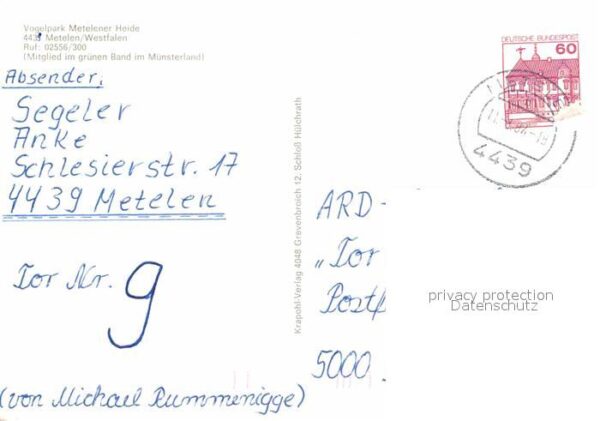 Vogelpark Metelener Heide
4439 Metelen/Westfalen
Ruf: 02556/300
(Mitglied im grünen Band im Münsterland)
Absender:
Segeler
Anke
Schlesierstr. 17
4439 Metelen
Tor Nr. 9
(von Michael Rummenigge)
Krapohl-Verlag 4048 Grevenbroich 12, Schloß Hülchrath
DEUTSCHE BUNDESPOST
60
4439
ARD-
„Tor
Postf
5000
privacy protection
Datenschutz